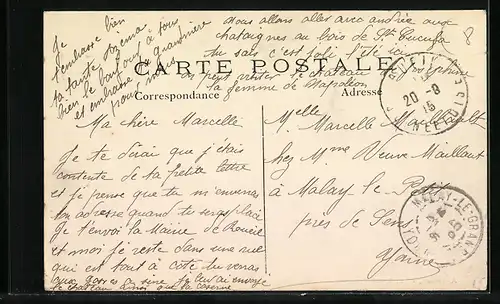 Nous allons aller avec andrée aux
chataignes au bois de St Cucufa
tu sais c'est joli l'été
on peut visiter le chateau de Josephine
la femme de Napoléon
Je
t'embrasse bien
ta tante
bien le bonjour à tous
et embrasse ta grandmère
pour nous
CARTE POSTALE
Correspondance
Adresse
RUEIL
20 - 9
15
Ma chère Marcelle
Je te dirai que j'etais
contente de ta petite lettre
et je pense que tu m'enverras
ton adresse quand tu seras placé
Je t'envoi la Mairie de Rueil
et moi je reste dans une rue
qui est tout à coté tu verras
le chateau ainsi que la caserne
Melle
Marcelle
chez Mme Veuve Maillaut
à Malay le Petit
près de Sens
Yonne
MALAY-LE-GRAND
YONNE